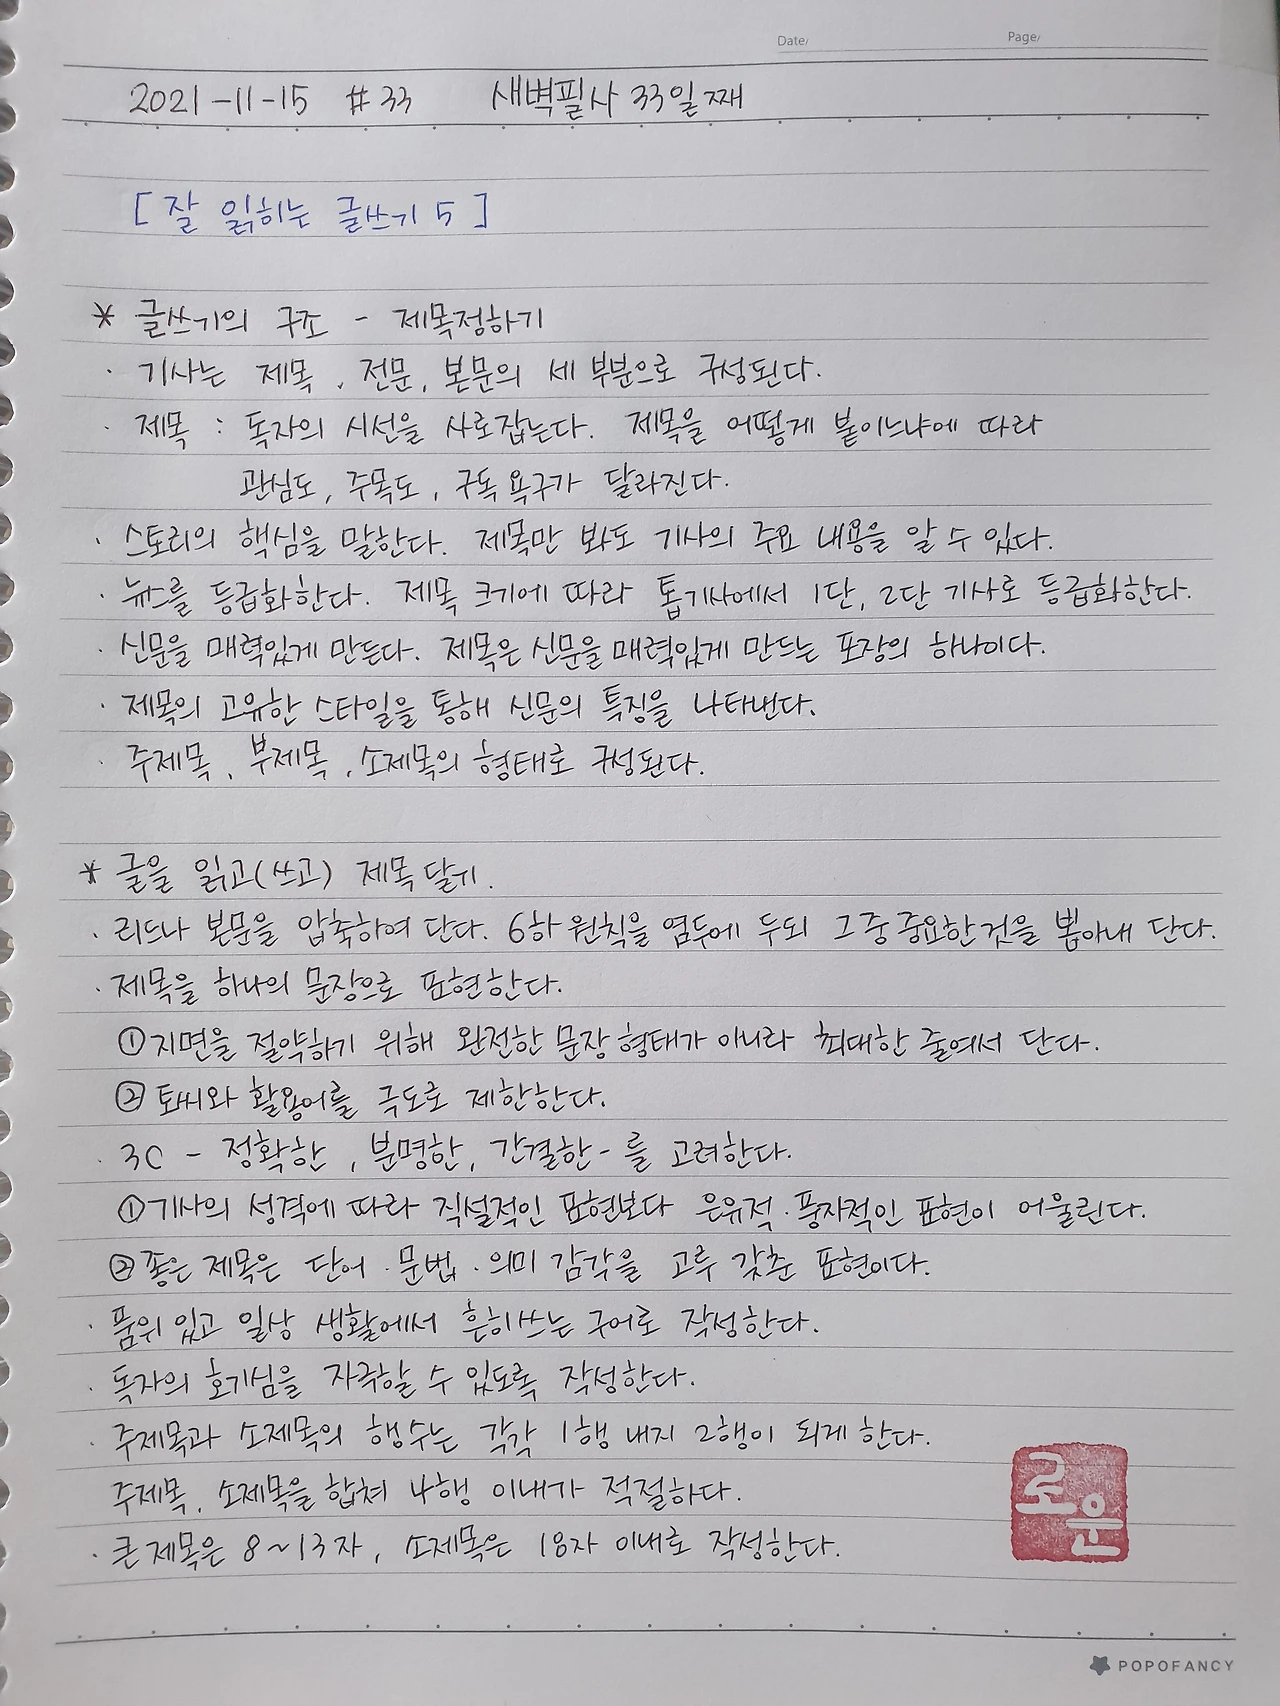 Date/ Page/
2021-11-15 #33 새벽필사 33일째
[잘 읽히는 글쓰기 5]
* 글쓰기의 구조 - 제목정하기
· 기사는 제목, 전문, 본문의 세 부분으로 구성된다.
· 제목 : 독자의 시선을 사로잡는다. 제목을 어떻게 붙이느냐에 따라
관심도, 주목도, 구독 욕구가 달라진다.
· 스토리의 핵심을 말한다. 제목만 봐도 기사의 주요 내용을 알 수 있다.
· 뉴스를 등급화한다. 제목 크기에 따라 톱기사에서 1단, 2단 기사로 등급화한다.
· 신문을 매력있게 만든다. 제목은 신문을 매력있게 만드는 포장의 하나이다.
· 제목의 고유한 스타일을 통해 신문의 특징을 나타낸다.
· 주제목, 부제목, 소제목의 형태로 구성된다.
* 글을 읽고(쓰고) 제목 달기.
· 리드나 본문을 압축하여 단다. 6하 원칙을 염두에 두되 그 중 중요한 것을 뽑아내 단다.
· 제목을 하나의 문장으로 표현한다.
① 지면을 절약하기 위해 완전한 문장 형태가 아니라 최대한 줄여서 단다.
② 토씨와 활용어를 극도로 제한한다.
· 3C - 정확한, 분명한, 간결한 - 를 고려한다.
① 기사의 성격에 따라 직설적인 표현보다 은유적·풍자적인 표현이 어울린다.
② 좋은 제목은 단어·문법·의미 감각을 고루 갖춘 표현이다.
· 품위 있고 일상 생활에서 흔히 쓰는 구어로 작성한다.
· 독자의 호기심을 자극할 수 있도록 작성한다.
· 주제목과 소제목의 행수는 각각 1행 내지 2행이 되게 한다.
주제목, 소제목을 합쳐 4행 이내가 적절하다.
· 큰 제목은 8~13자, 소제목은 18자 이내로 작성한다.
로운
POPOFANCY